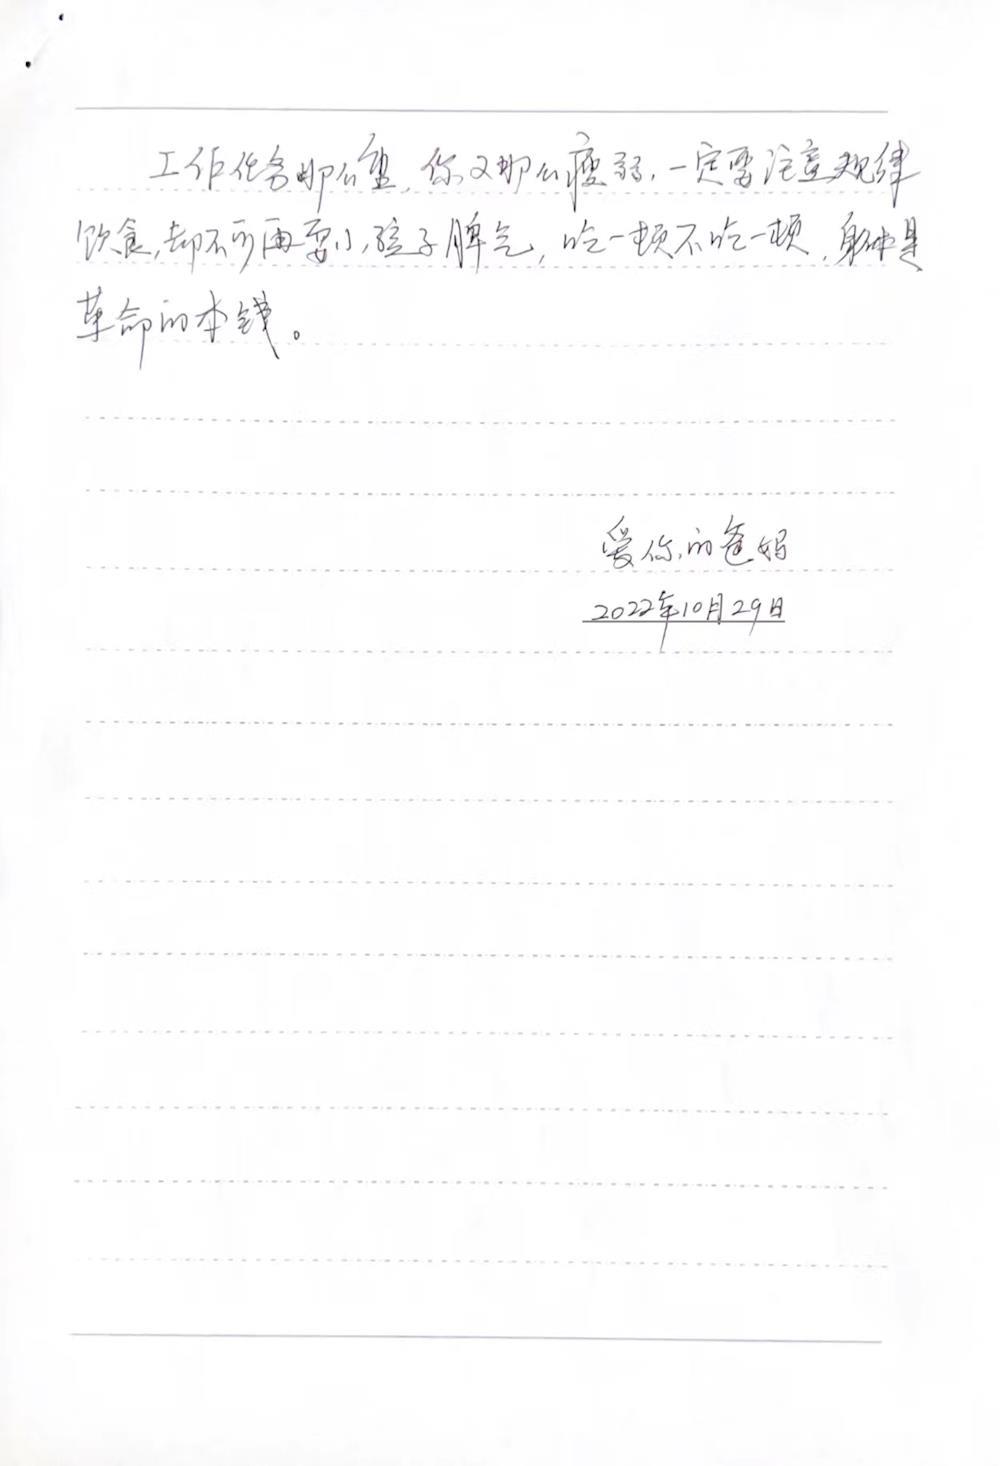 工作任务那么重，你又那么瘦弱，一定要注意规律
饮食，却不可再耍小孩子脾气，吃一顿不吃一顿，身体是
革命的本钱。
爱你的爸妈
2022年10月29日